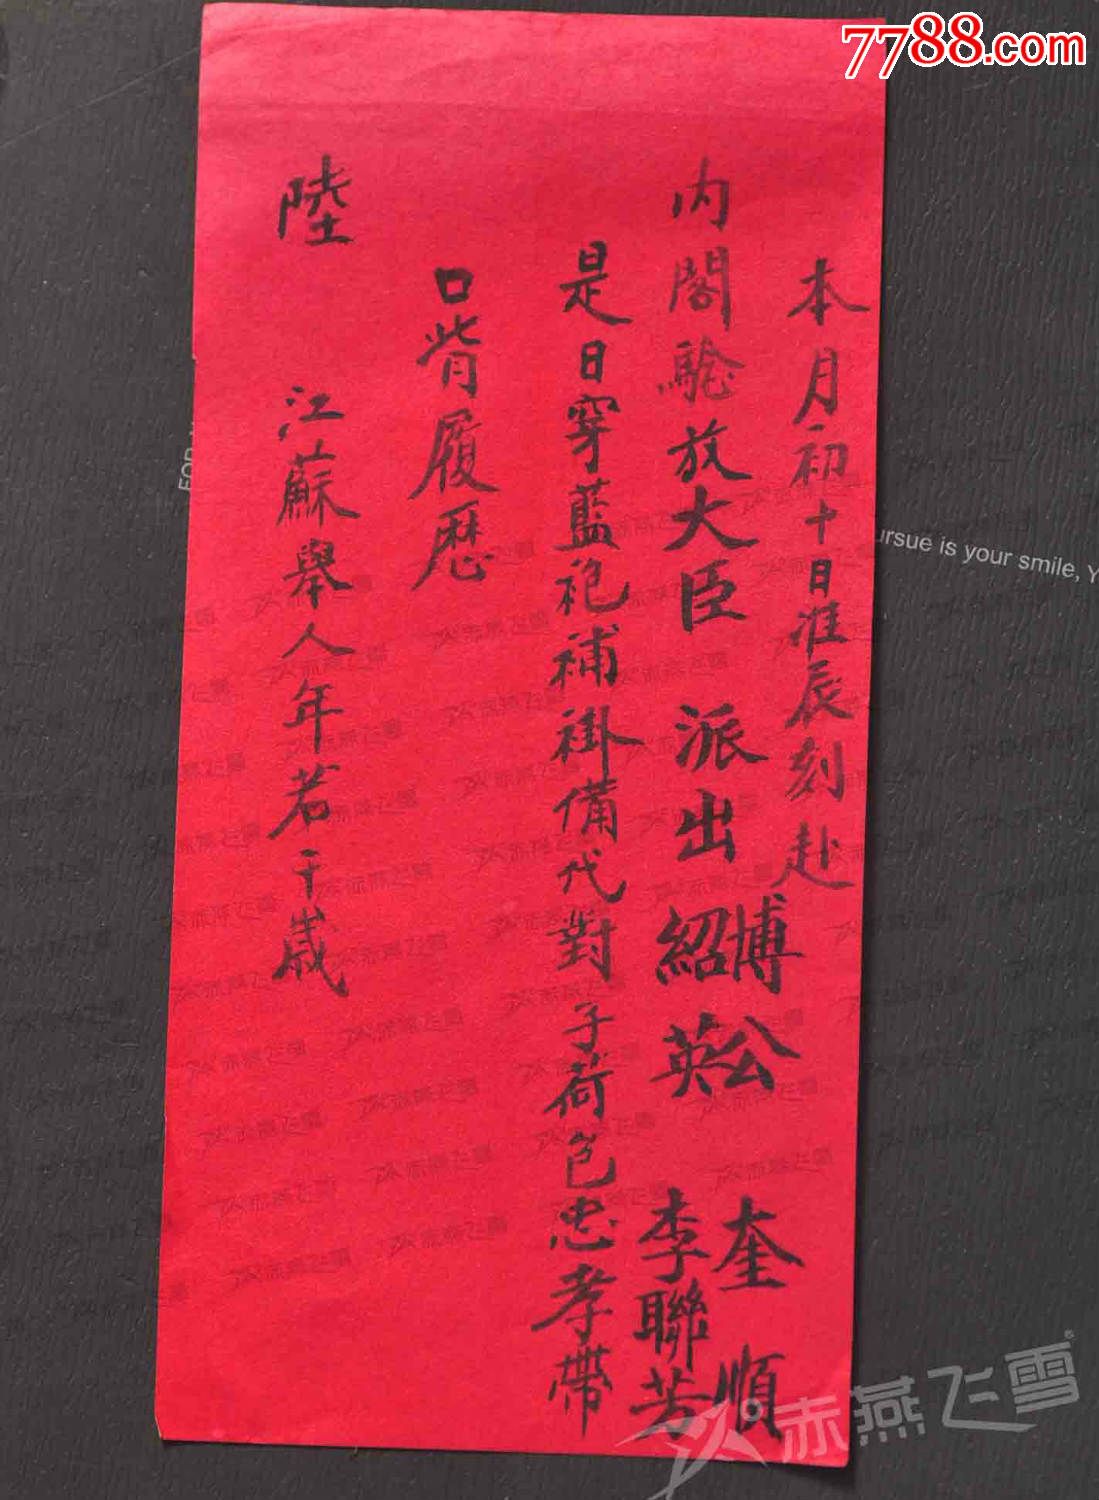 本月初十日准辰刻赴
内閣驗放大臣 派出 博公 奎順
紹英 李聯芳
是日穿藍袍補褂備代對子荷包忠孝帶
口背履歷
陸 江蘇舉人年若干歲
7788.com
ursue is your smile, Y
赤燕飞雪